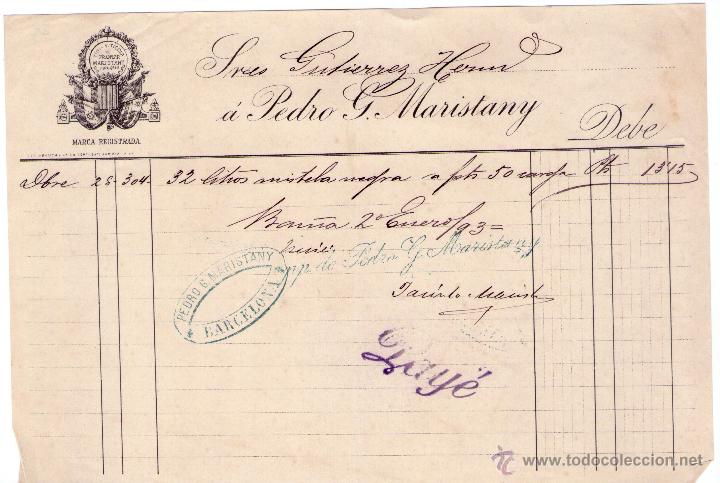 PEDRO G. MARISTANY
MARCA REGISTRADA
Sres Gutierrez Herm
á Pedro G. Maristany
Debe
Dbre 28 - 304 - 32 litros mistela negra a pts 50 carga Pts 13'15
Barna 2 Enero/93=
p.p. de Pedro G. Maristany
PEDRO G. MARISTANY
BARCELONA
Jacinto Marist
Payé
www.todocoleccion.net